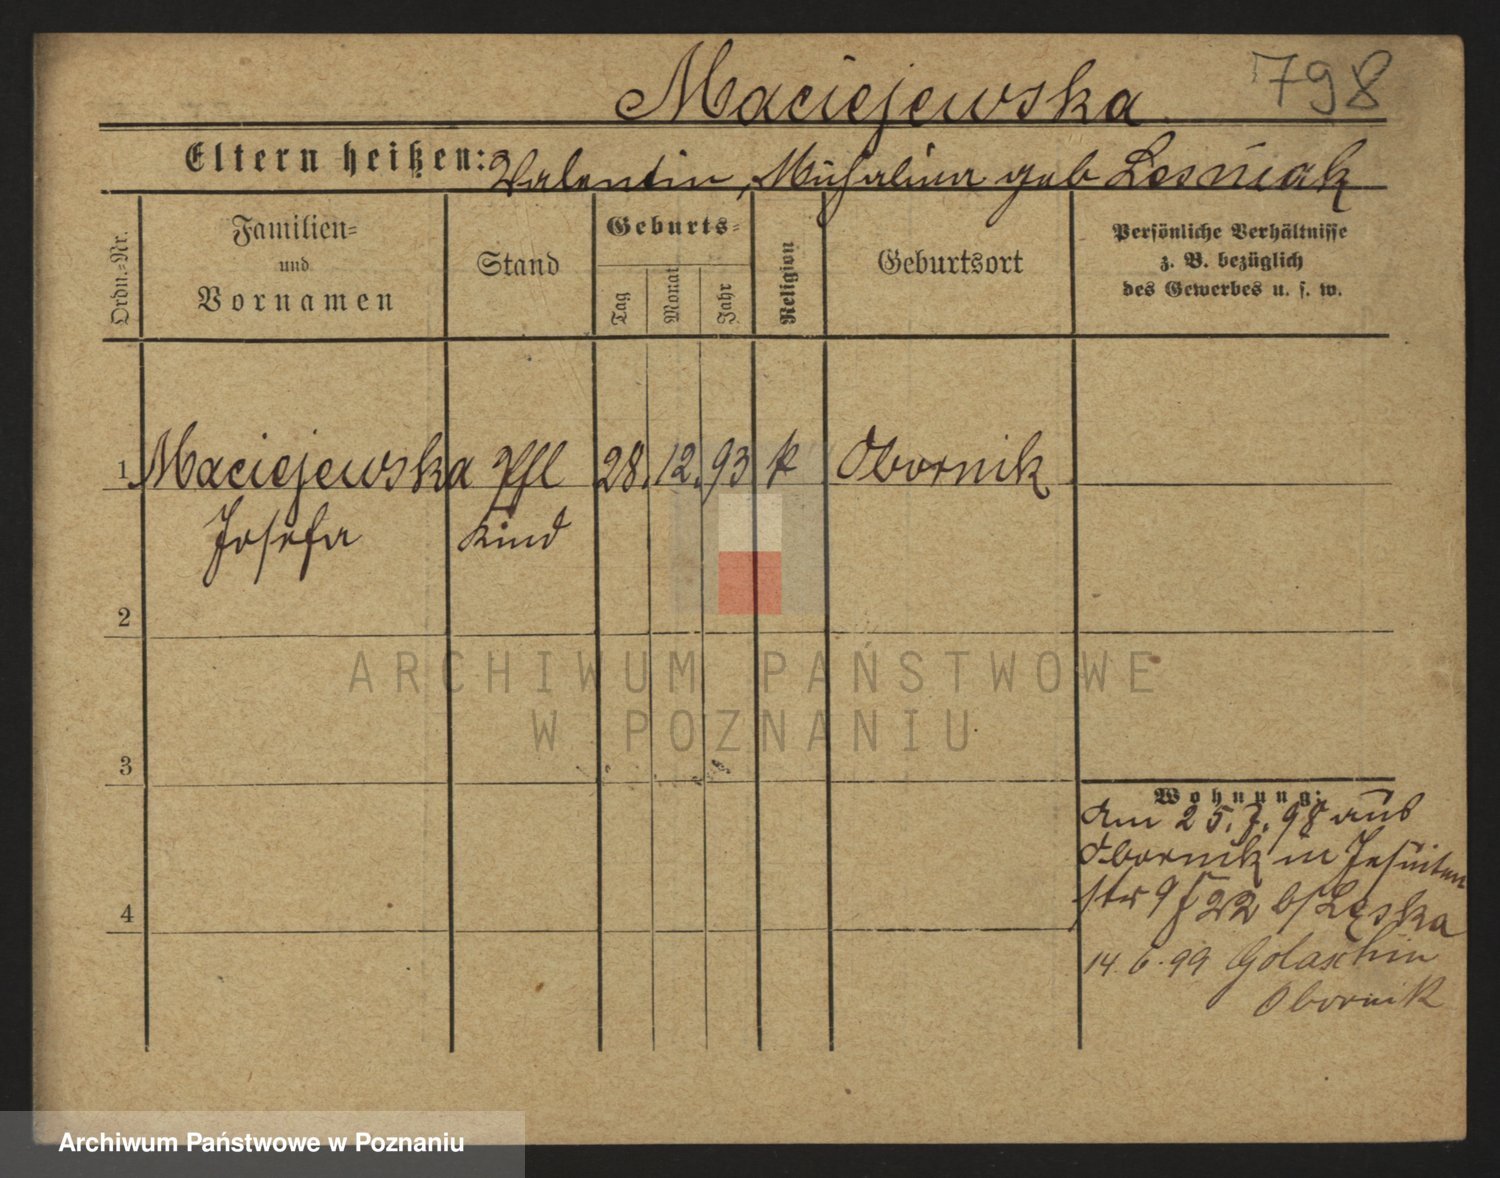 Maciejewska 798
Eltern heißen: Valentin, Michalina geb Lesniak
Ordn.-Nr.
Familien-
und
Vornamen
Stand
Geburts-
Tag
Monat
Jahr
Religion
Geburtsort
Persönliche Verhältnisse
z. B. bezüglich
des Gewerbes u. s. w.
1 Maciejewska Pfl 28. 12. 93 k Obornik
Josefa Kind
2
ARCHIWUM PAŃSTWOWE
W POZNANIU
3
Wohnung:
Am 25. 7. 98 aus
Obornik in Jesuiten
str 9 22 b/ Lęska
4
14. 6. 99 Golaschin
Obornik
Archiwum Państwowe w Poznaniu